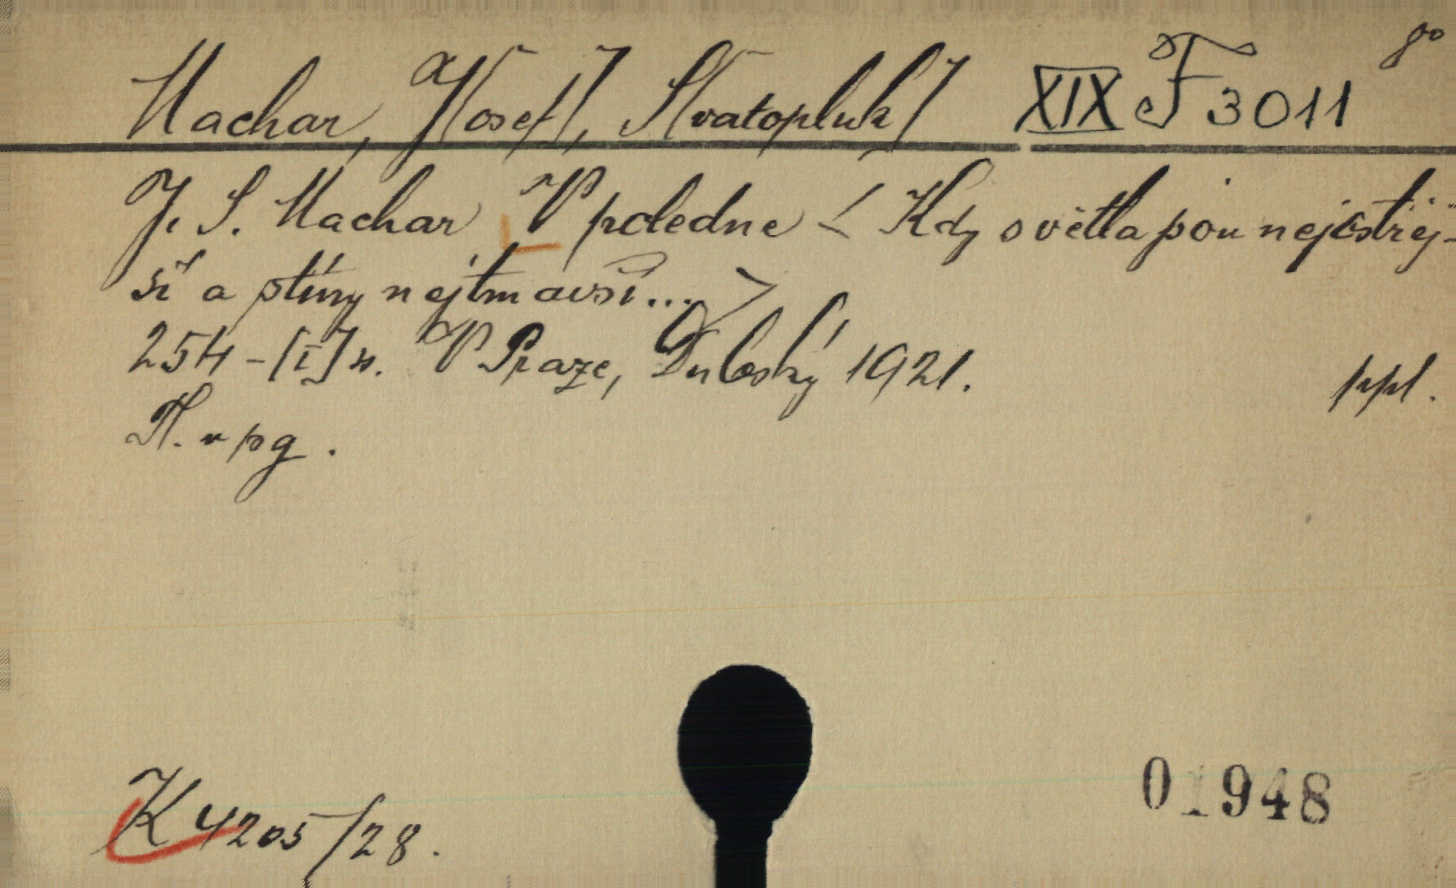 Machar, J[osef], S[vatopluk] XIX F 3011 8°
J. S. Machar V poledne < Kdy světla jsou nejostřej-
ší a stíny nejtmavší... >
254-[I] s. V Praze, Dubský 1921. ppl.
Tl. v pg.
K 4205/28.
01948